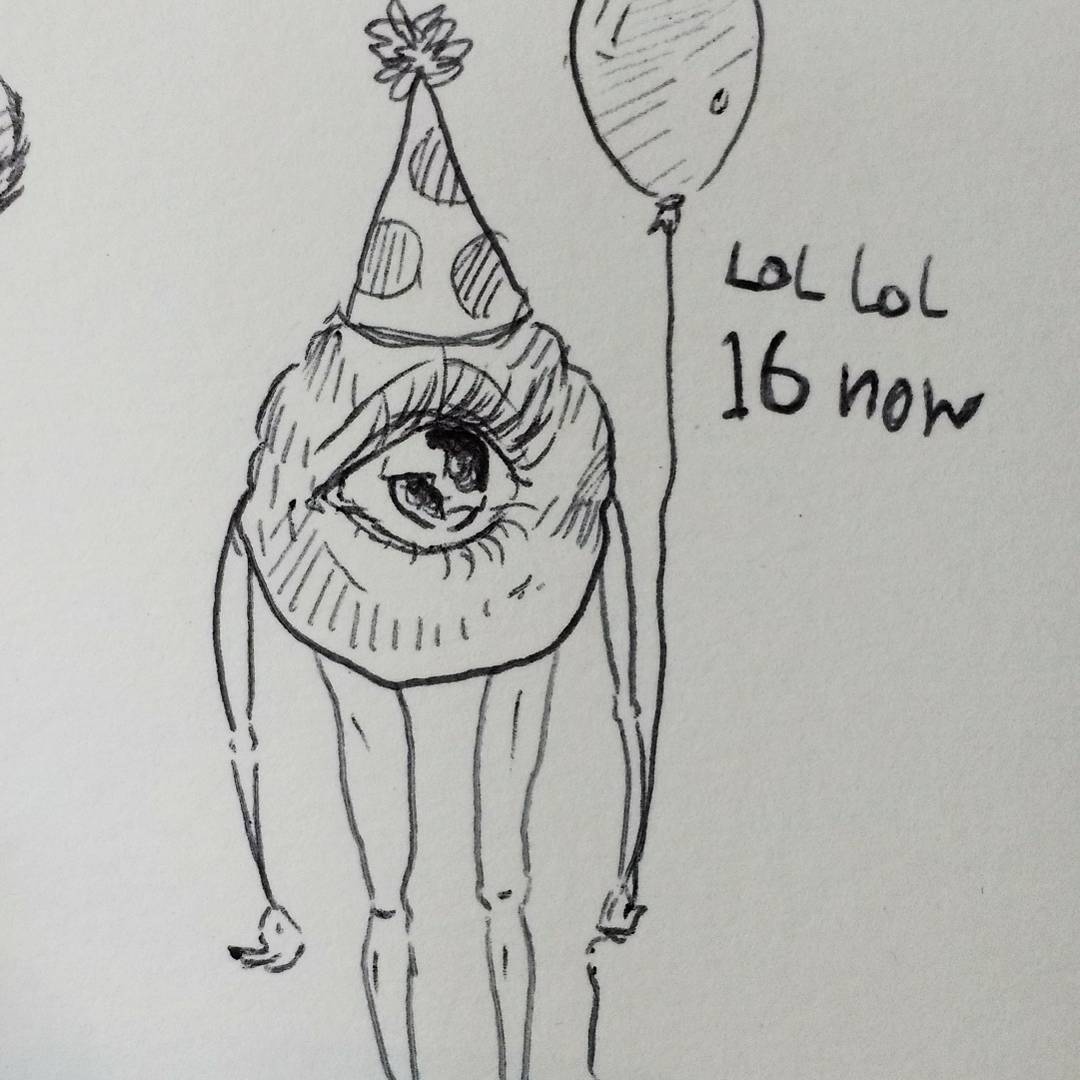 LOL LOL
16 now